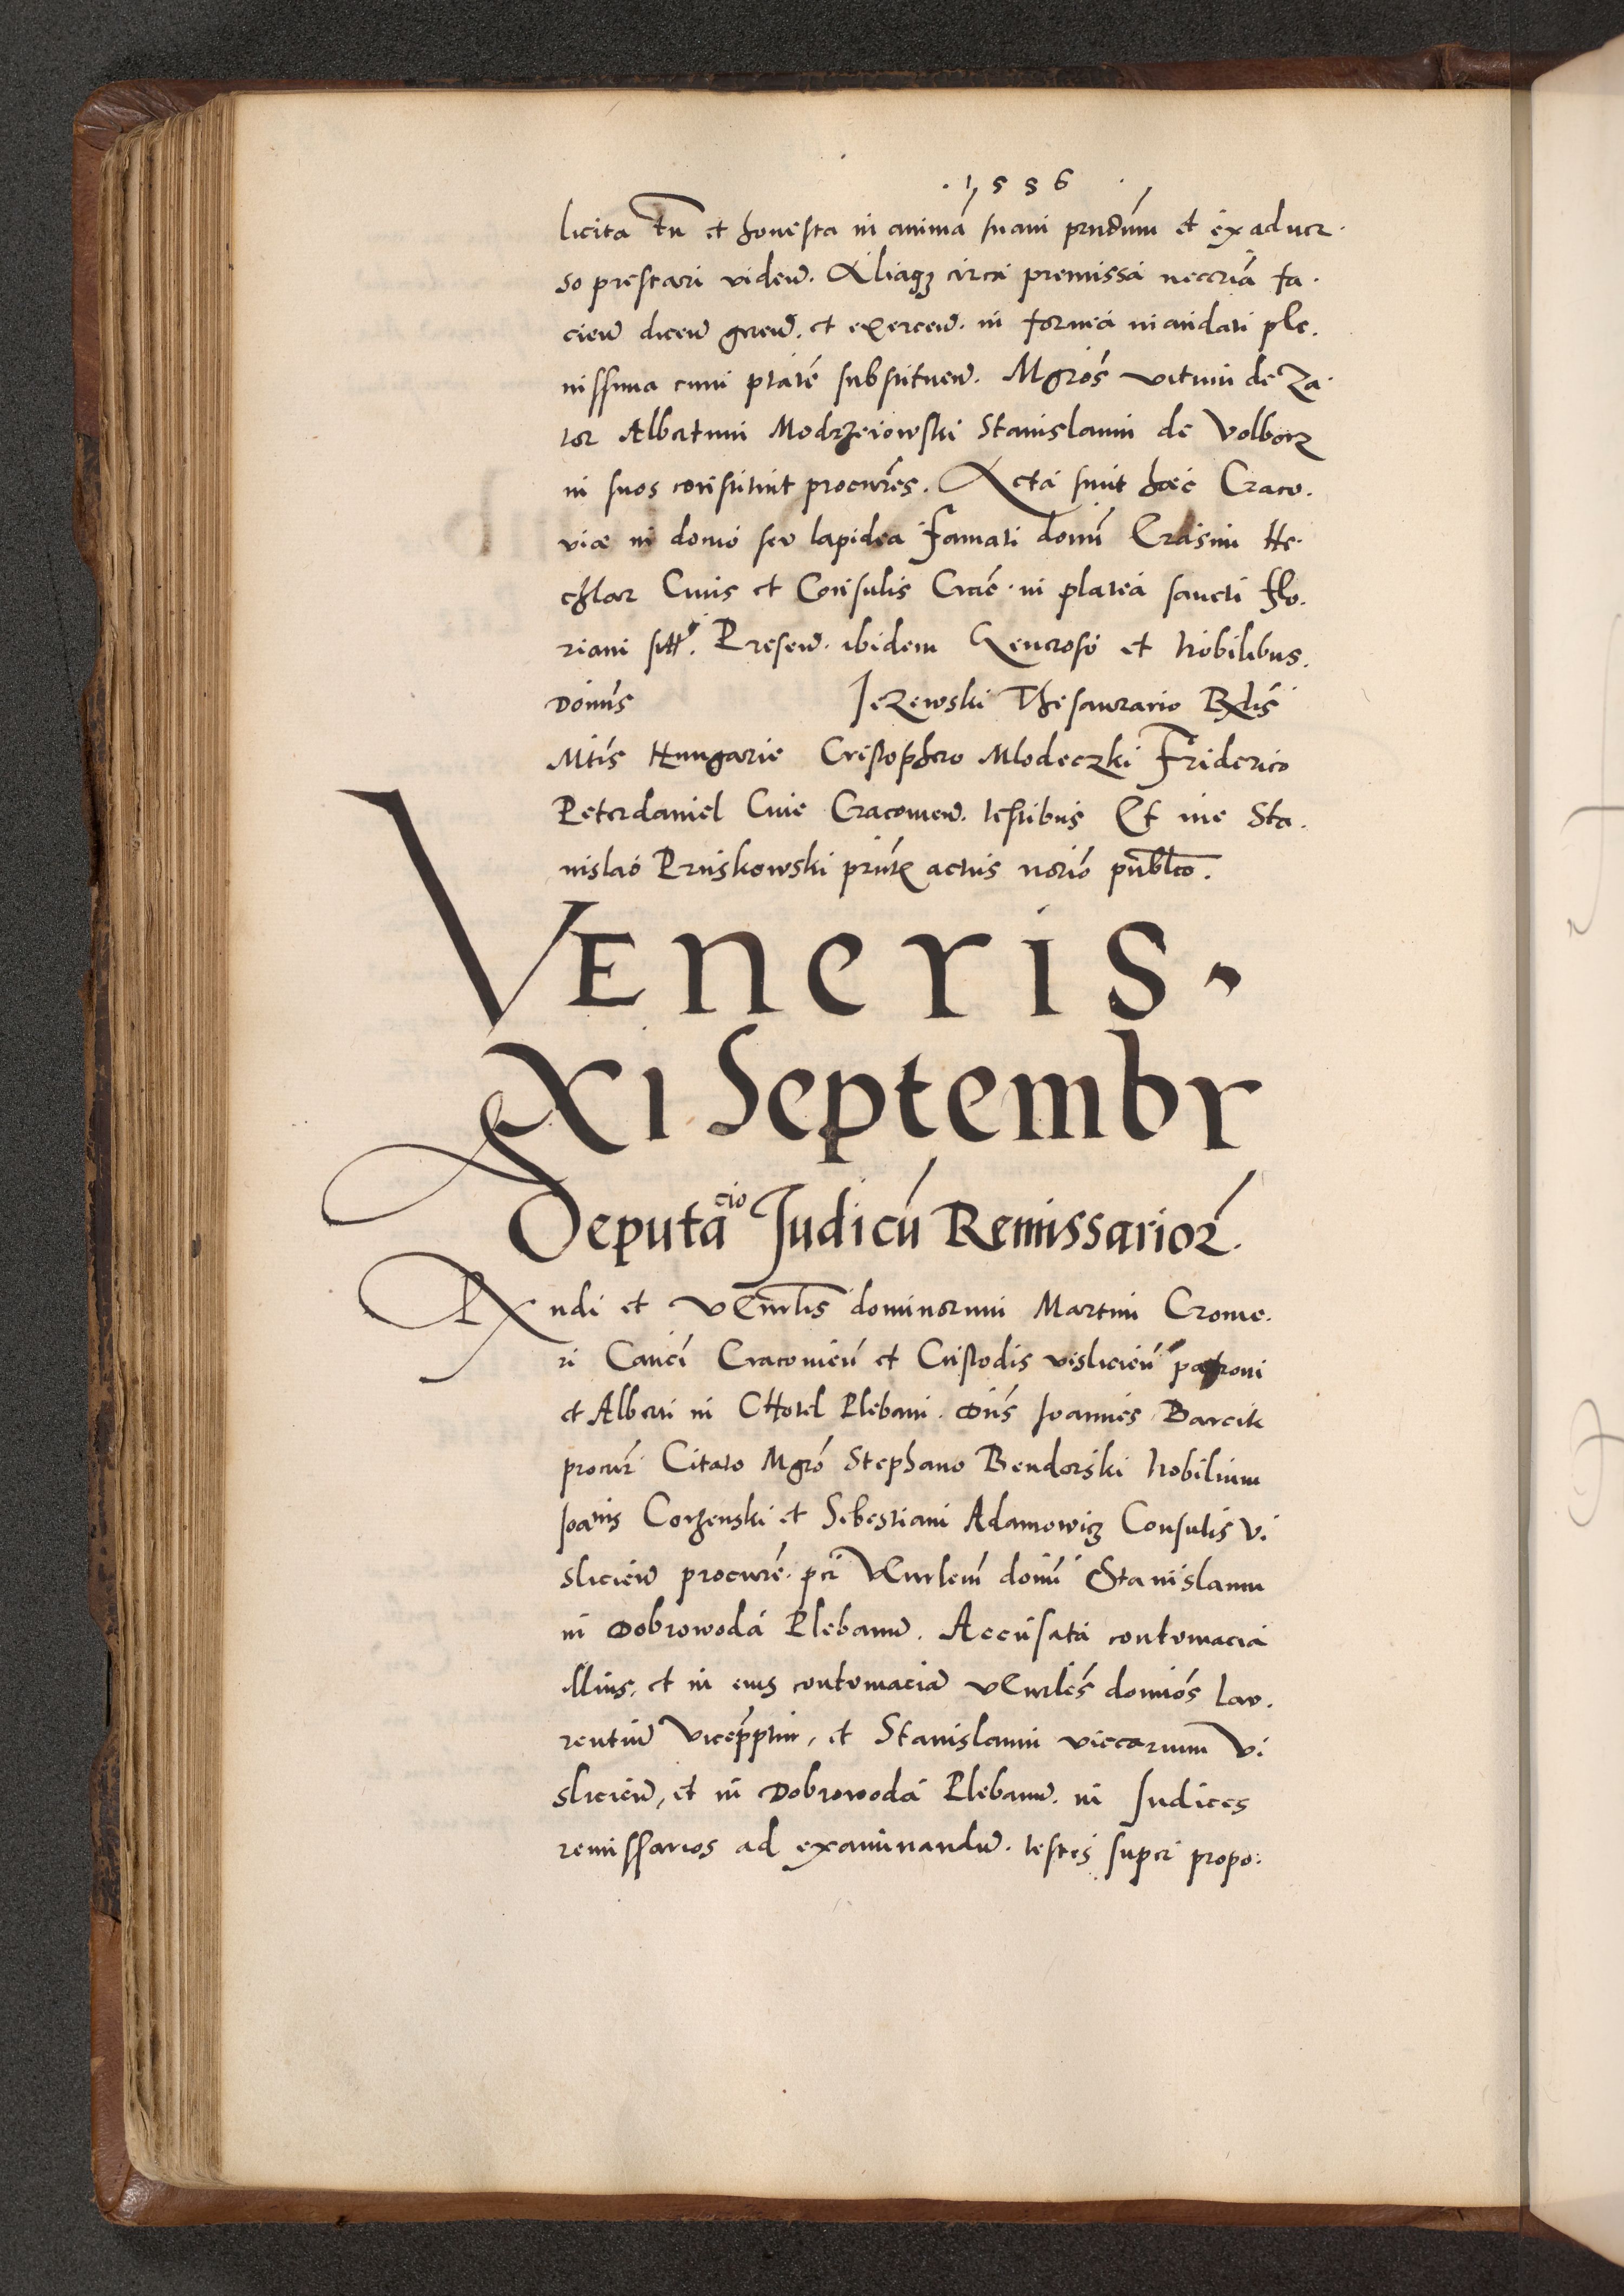 1556
licita tn̄ et honesta in animā suam prndūm et ex aduer.
so prestari viden̄. Aliaqȝ circa premissa neccriā fa.
cien̄ dicen̄ gren̄. et exercen̄. in forma mandati ple.
nissima cum ptatē substituen̄. Mgrōs vitum de Za.
tor Albertum Modrzeiowski Stanislaum de Volborz
in suos constituit procurēs. Acta sunt haec Craco.
viæ in domo seo lapidea Famati domī Erasmi He.
chlar Ciuis et Consulis Cracē. in platea sancti Flo.
riani sitt. Presen̄. ibidem Generoso et Nobilibus.
Domīs Jezewski Thesaurario Rxlīs
Mtīs Hungarie Cristophero Mlodeczki Friderico
Peterdaniel Ciue Cracouien̄. testibus Et me Sta.
nislao Pruskowski prñte actuis notriō publco.
VENERIS.
XI Septembr
Deputacio Judicū Remissarior.
Rxndi et vEnrlis dominorum Martini Crome.
ri Canci Cracouien̄ et Custodis vislicien̄ patroni
et Alberti in CHotel Plebani. Dn̄s Joannes Barcik
procur Citato Mgrō Stephano Bendorski Nobilium
Joanis Corzenski et Sebestiani Adamowicz Consulis Vi
slicien̄ procurē. pr VEnrlem domī Stanislaum
in Dobrowoda Plebanū. Accusata contumacia
illius, et in eius contumaciā vEnrlēs domiōs Lav.
rentiū Viceppitm, et Stanislaum viccarium Vi
slicien̄, et in Dobrowoda Plebanū. in Judices
remissarios ad examinandū. testes super propo.